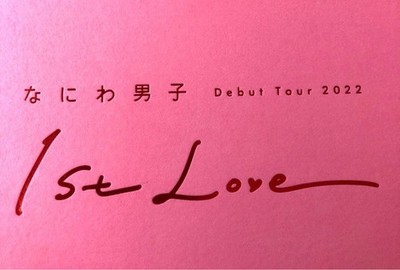 なにわ男子 Debut Tour 2022
1st Love